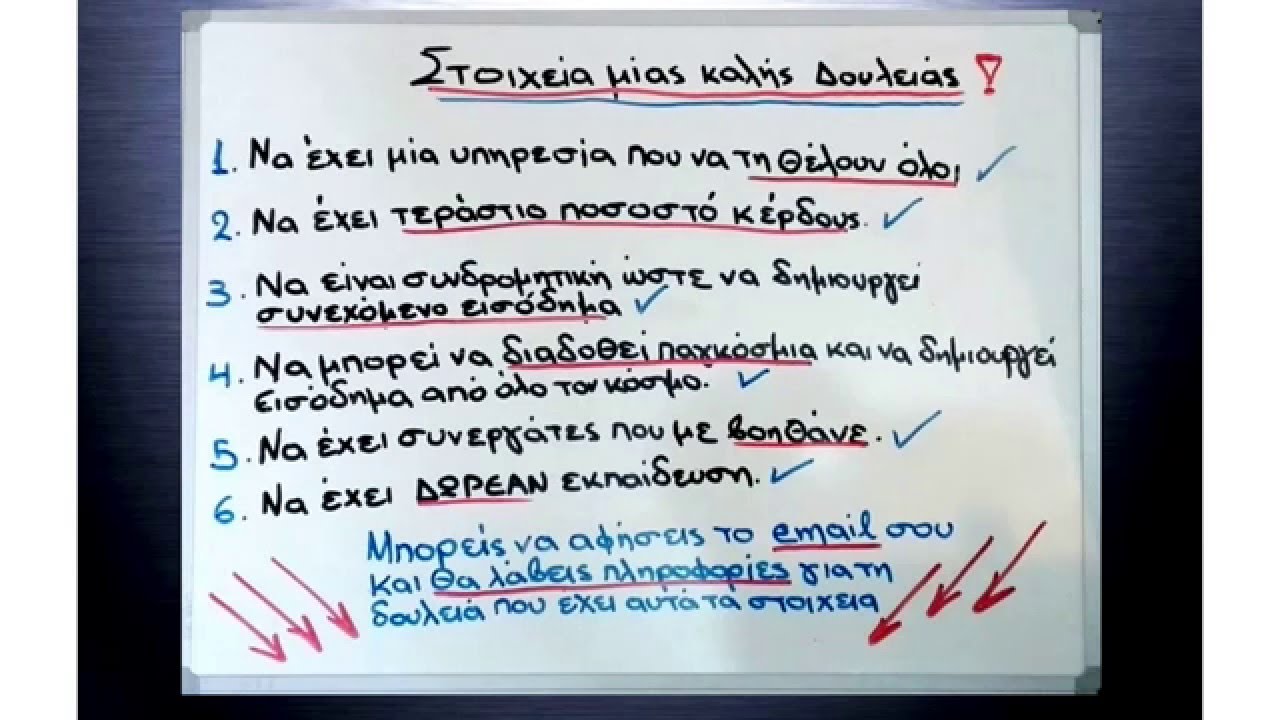 Στοιχεία μίας καλής Δουλειάς !
1. Να έχει μία υπηρεσία που να τη θέλουν όλοι ✓
2. Να έχει τεράστιο ποσοστό κέρδους. ✓
3. Να είναι συνδρομητική ώστε να δημιουργεί
συνεχόμενο εισόδημα ✓
4. Να μπορεί να διαδοθεί παγκόσμια και να δημιουργεί
εισόδημα από όλο τον κόσμο. ✓
5. Να έχει συνεργάτες που με βοηθάνε. ✓
6. Να έχει ΔΩΡΕΑΝ εκπαίδευση. ✓
Μπορείς να αφήσεις το email σου
και θα λάβεις πληροφορίες για τη
δουλειά που έχει αυτά τα στοιχεία